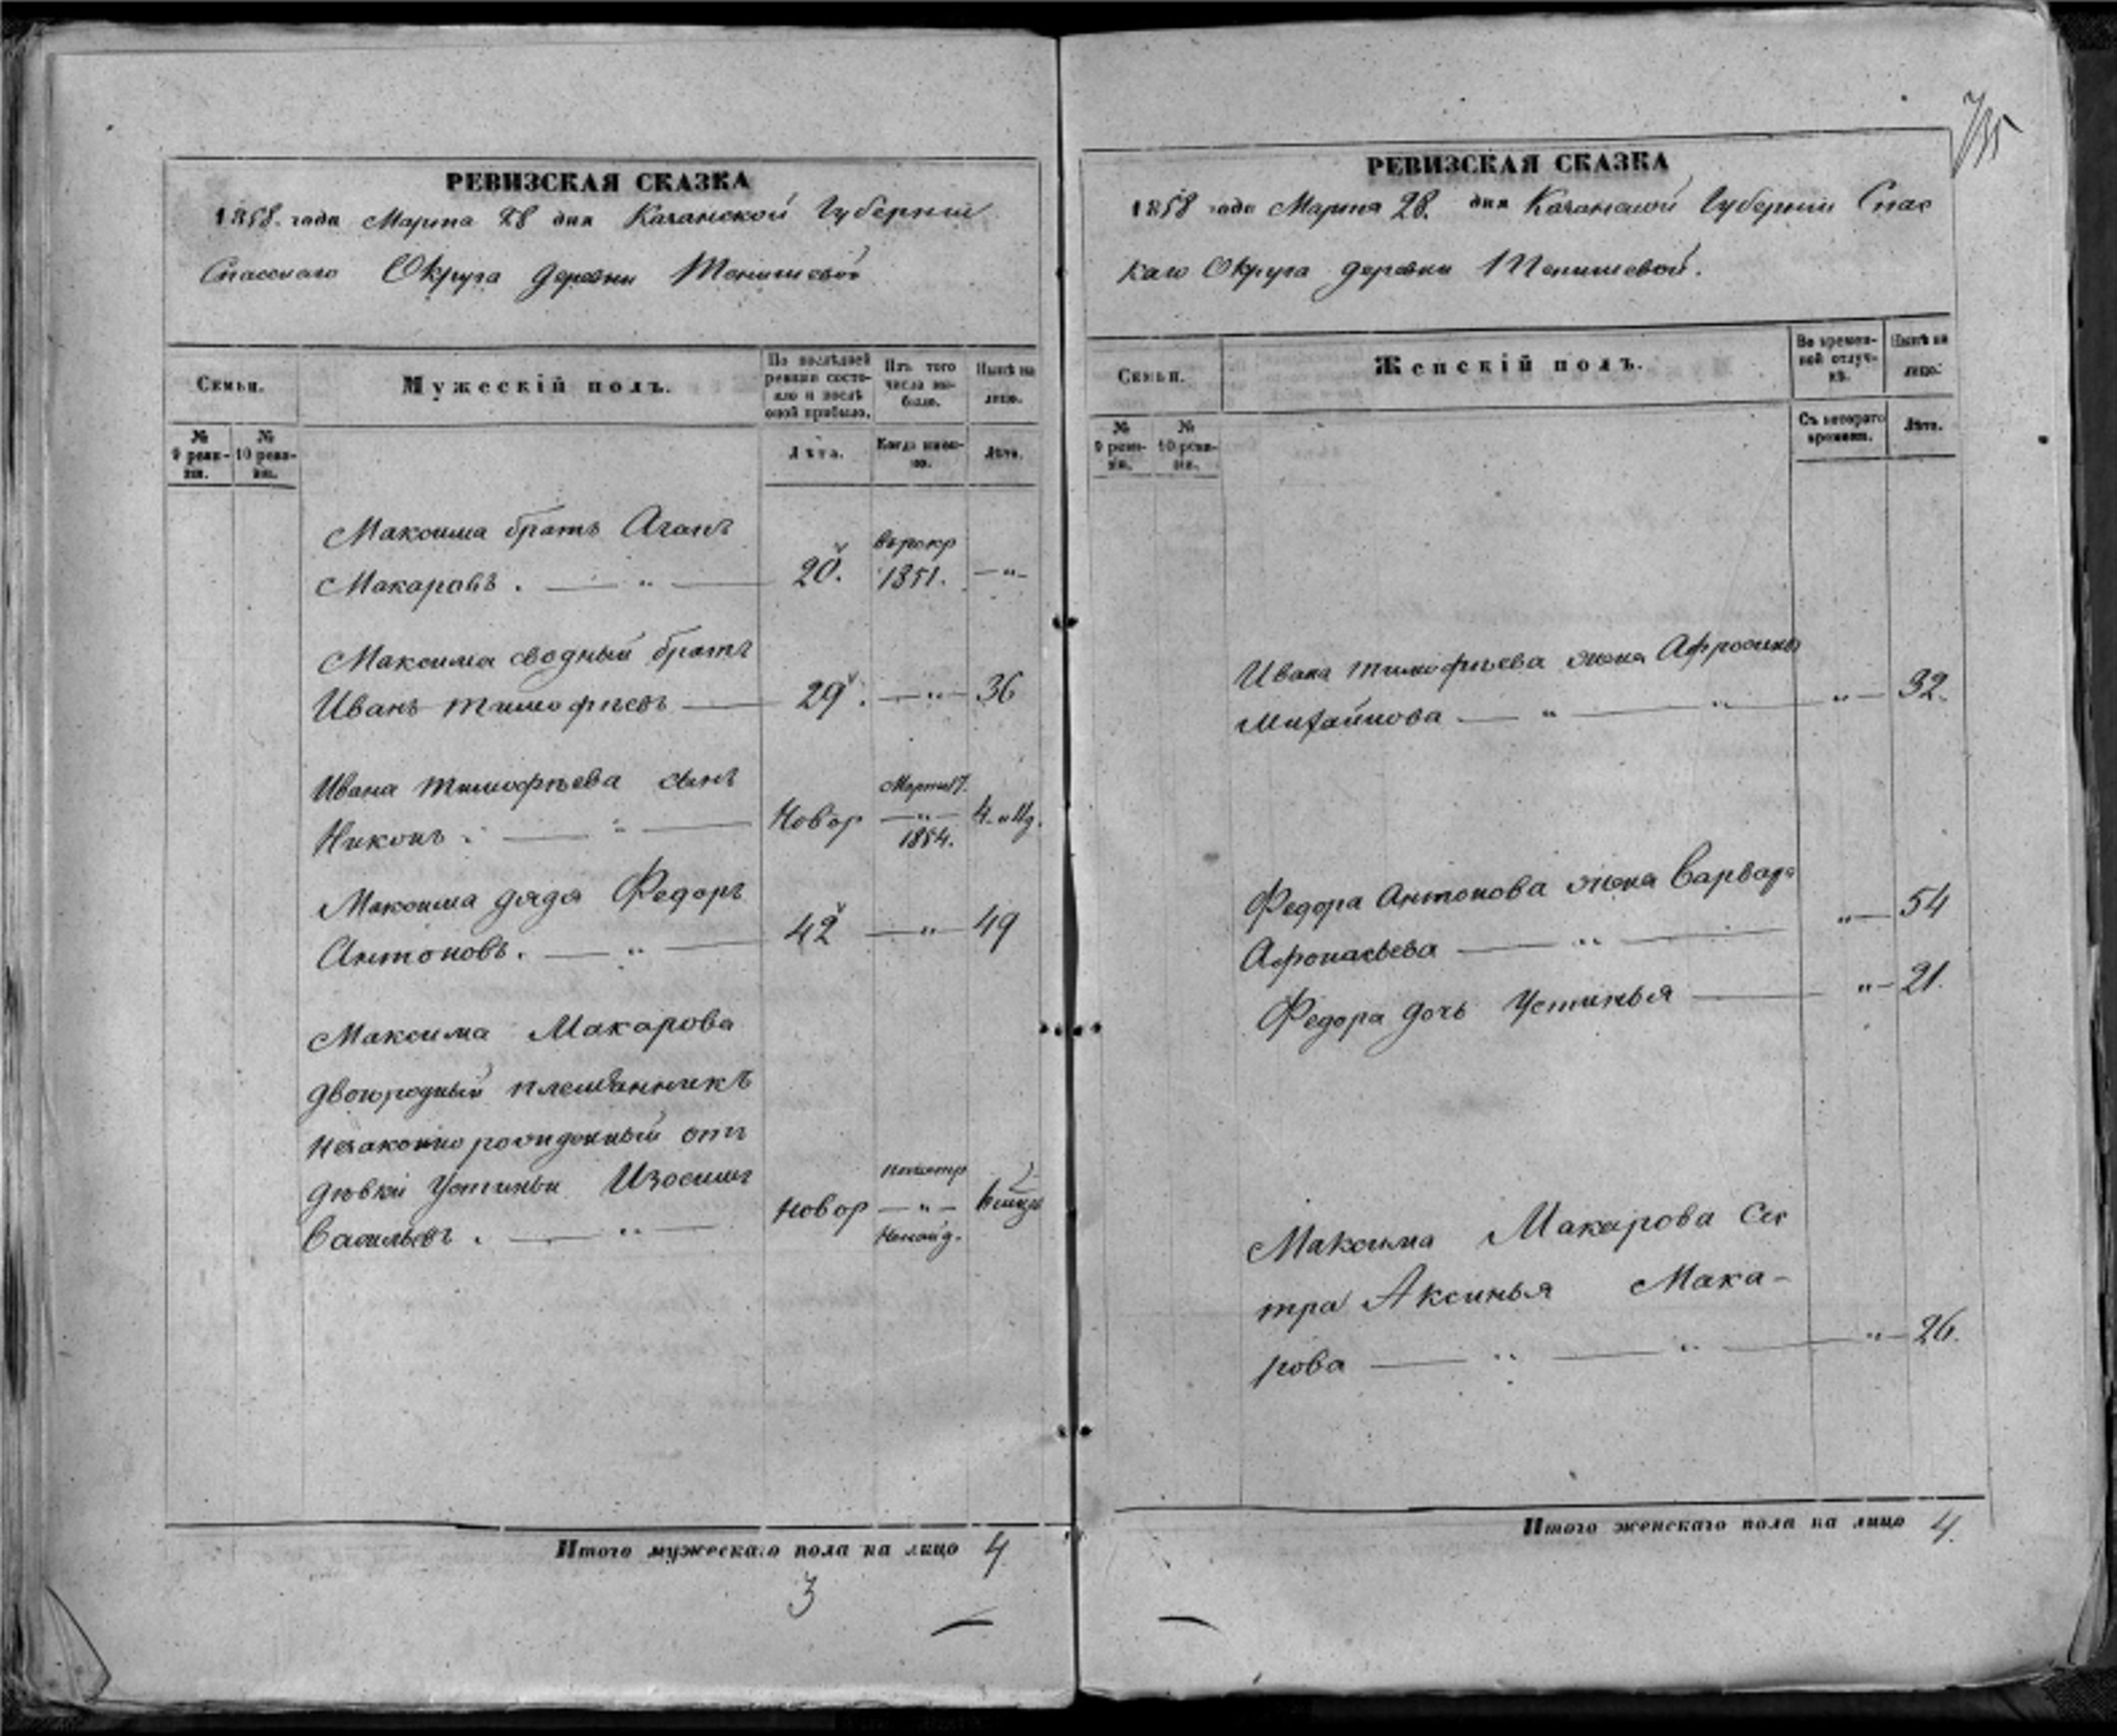 РЕВИЗСКАЯ СКАЗКА
1858. года Марта 28 дня Казанской Губерніи
Спасскаго Округа деревни Тенишевой
Семьи.
Мужескій полъ.
По послѣдней ревизіи состояло и послѣ оной прибыло.
Изъ того числа выбыло.
Нынѣ на лицо.
№ 9 ревизіи.
№ 10 ревизіи.
Лѣта.
Когда именно.
Лѣта.
Максима братъ Аганъ
Макаровъ. — " — 20. 1851. — " —
Максима сводный братъ
Иванъ Тимофѣевъ — 29. — " — 36
Ивана Тимофѣева сынъ
Никонъ. — " — Новор — " — 1854. 4.
Максима дядя Федоръ
Антоновъ. — " — 42 — " — 49
Максима Макарова
двоюродный племянникъ
незаконно рожденный отъ
дѣвки Устиньи Изосимъ
Васильевъ. — " — Новор — " —
Итого мужескаго пола на лицо 4
3
735
РЕВИЗСКАЯ СКАЗКА
1858 года Марта 28. дня Казанской Губерніи Спас
каго Округа деревни Тенишевой.
Семьи.
Женскій полъ.
Во временной отлучкѣ.
Нынѣ на лицо.
№ 9 ревизіи.
№ 10 ревизіи.
Съ котораго времени.
Лѣта.
Ивана Тимофѣева жена Афросинья
Михайлова — " — " — " — 32.
Федора Антонова жена Варвара
Афонасьева — " — " — 54
Федора дочь Устинья — " — 21.
Максима Макарова Сес
тра Аксинья Мака-
рова — " — " — " — 26.
Итого женскаго пола на лицо 4.